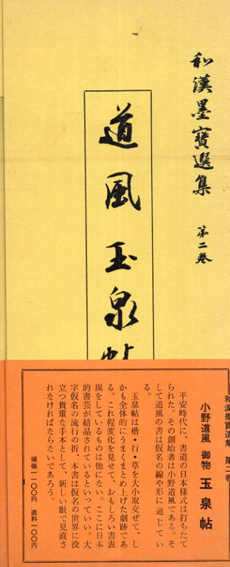 和漢墨寶選集 第二巻
道風玉泉帖
和漢墨宝選集 第二巻
小野道風 御物 玉泉帖
平安時代に、書道の日本様式は打ちたて
られた。その創始者は小野道風である。そ
して道風の書は仮名の線や形に通じてい
る。
玉泉帖は楷・行・草を大小取交ぜて、し
かも全体的にうまくまとめ上げた劇跡であ
る。これ程変化を見せ、おもしろい書表
現をしているものは他にない。ここに日本
的書芸が結晶されているといっていい。大
字仮名の流行の折、本書は仮名の世界に役
立つ貴重な手本として、新しい眼で見直さ
れなければならないであろう。
価一一〇〇円 送料一〇〇円